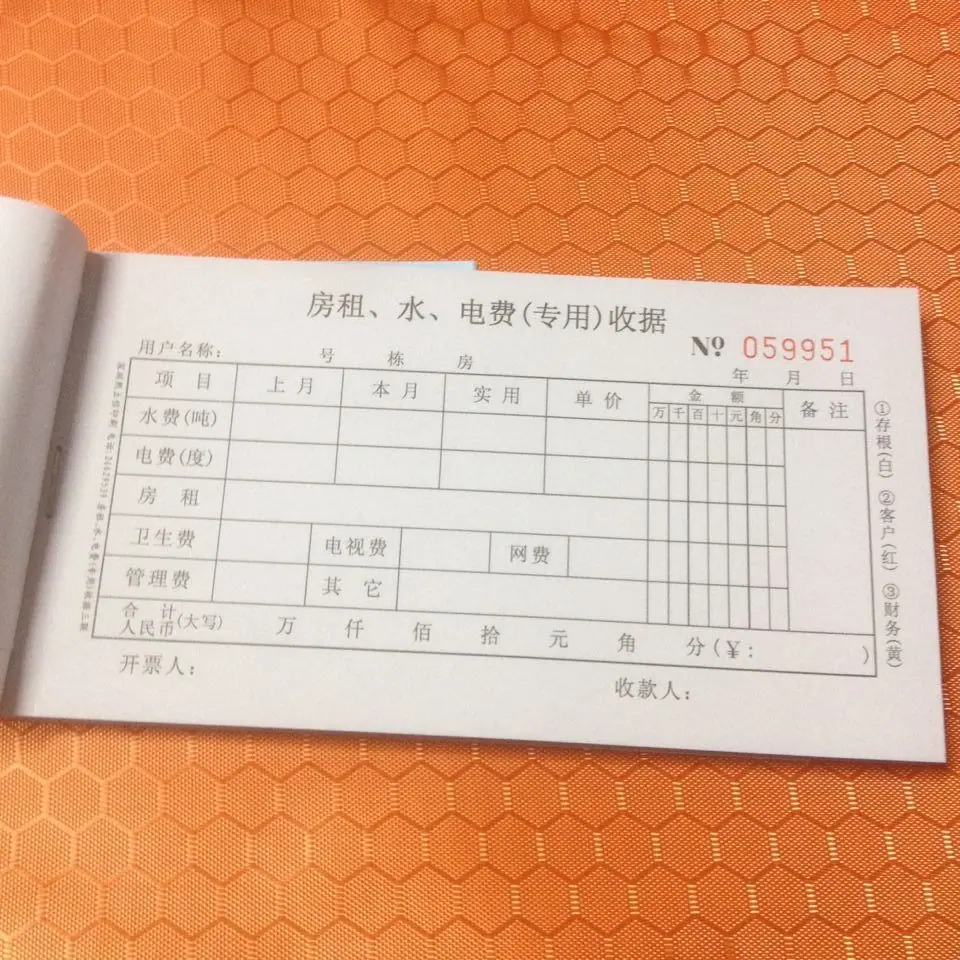 房租、水、电费(专用)收据
№ 059951
用户名称: 号 栋 房 年 月 日
项目 上月 本月 实用 单价 金额 备注
万 千 百 十 元 角 分
水费(吨)
电费(度)
房租
卫生费 电视费 网费
管理费 其它
合计
人民币(大写) 万 仟 佰 拾 元 角 分(¥: )
开票人: 收款人:
①存根(白) ②客户(红) ③财务(黄)